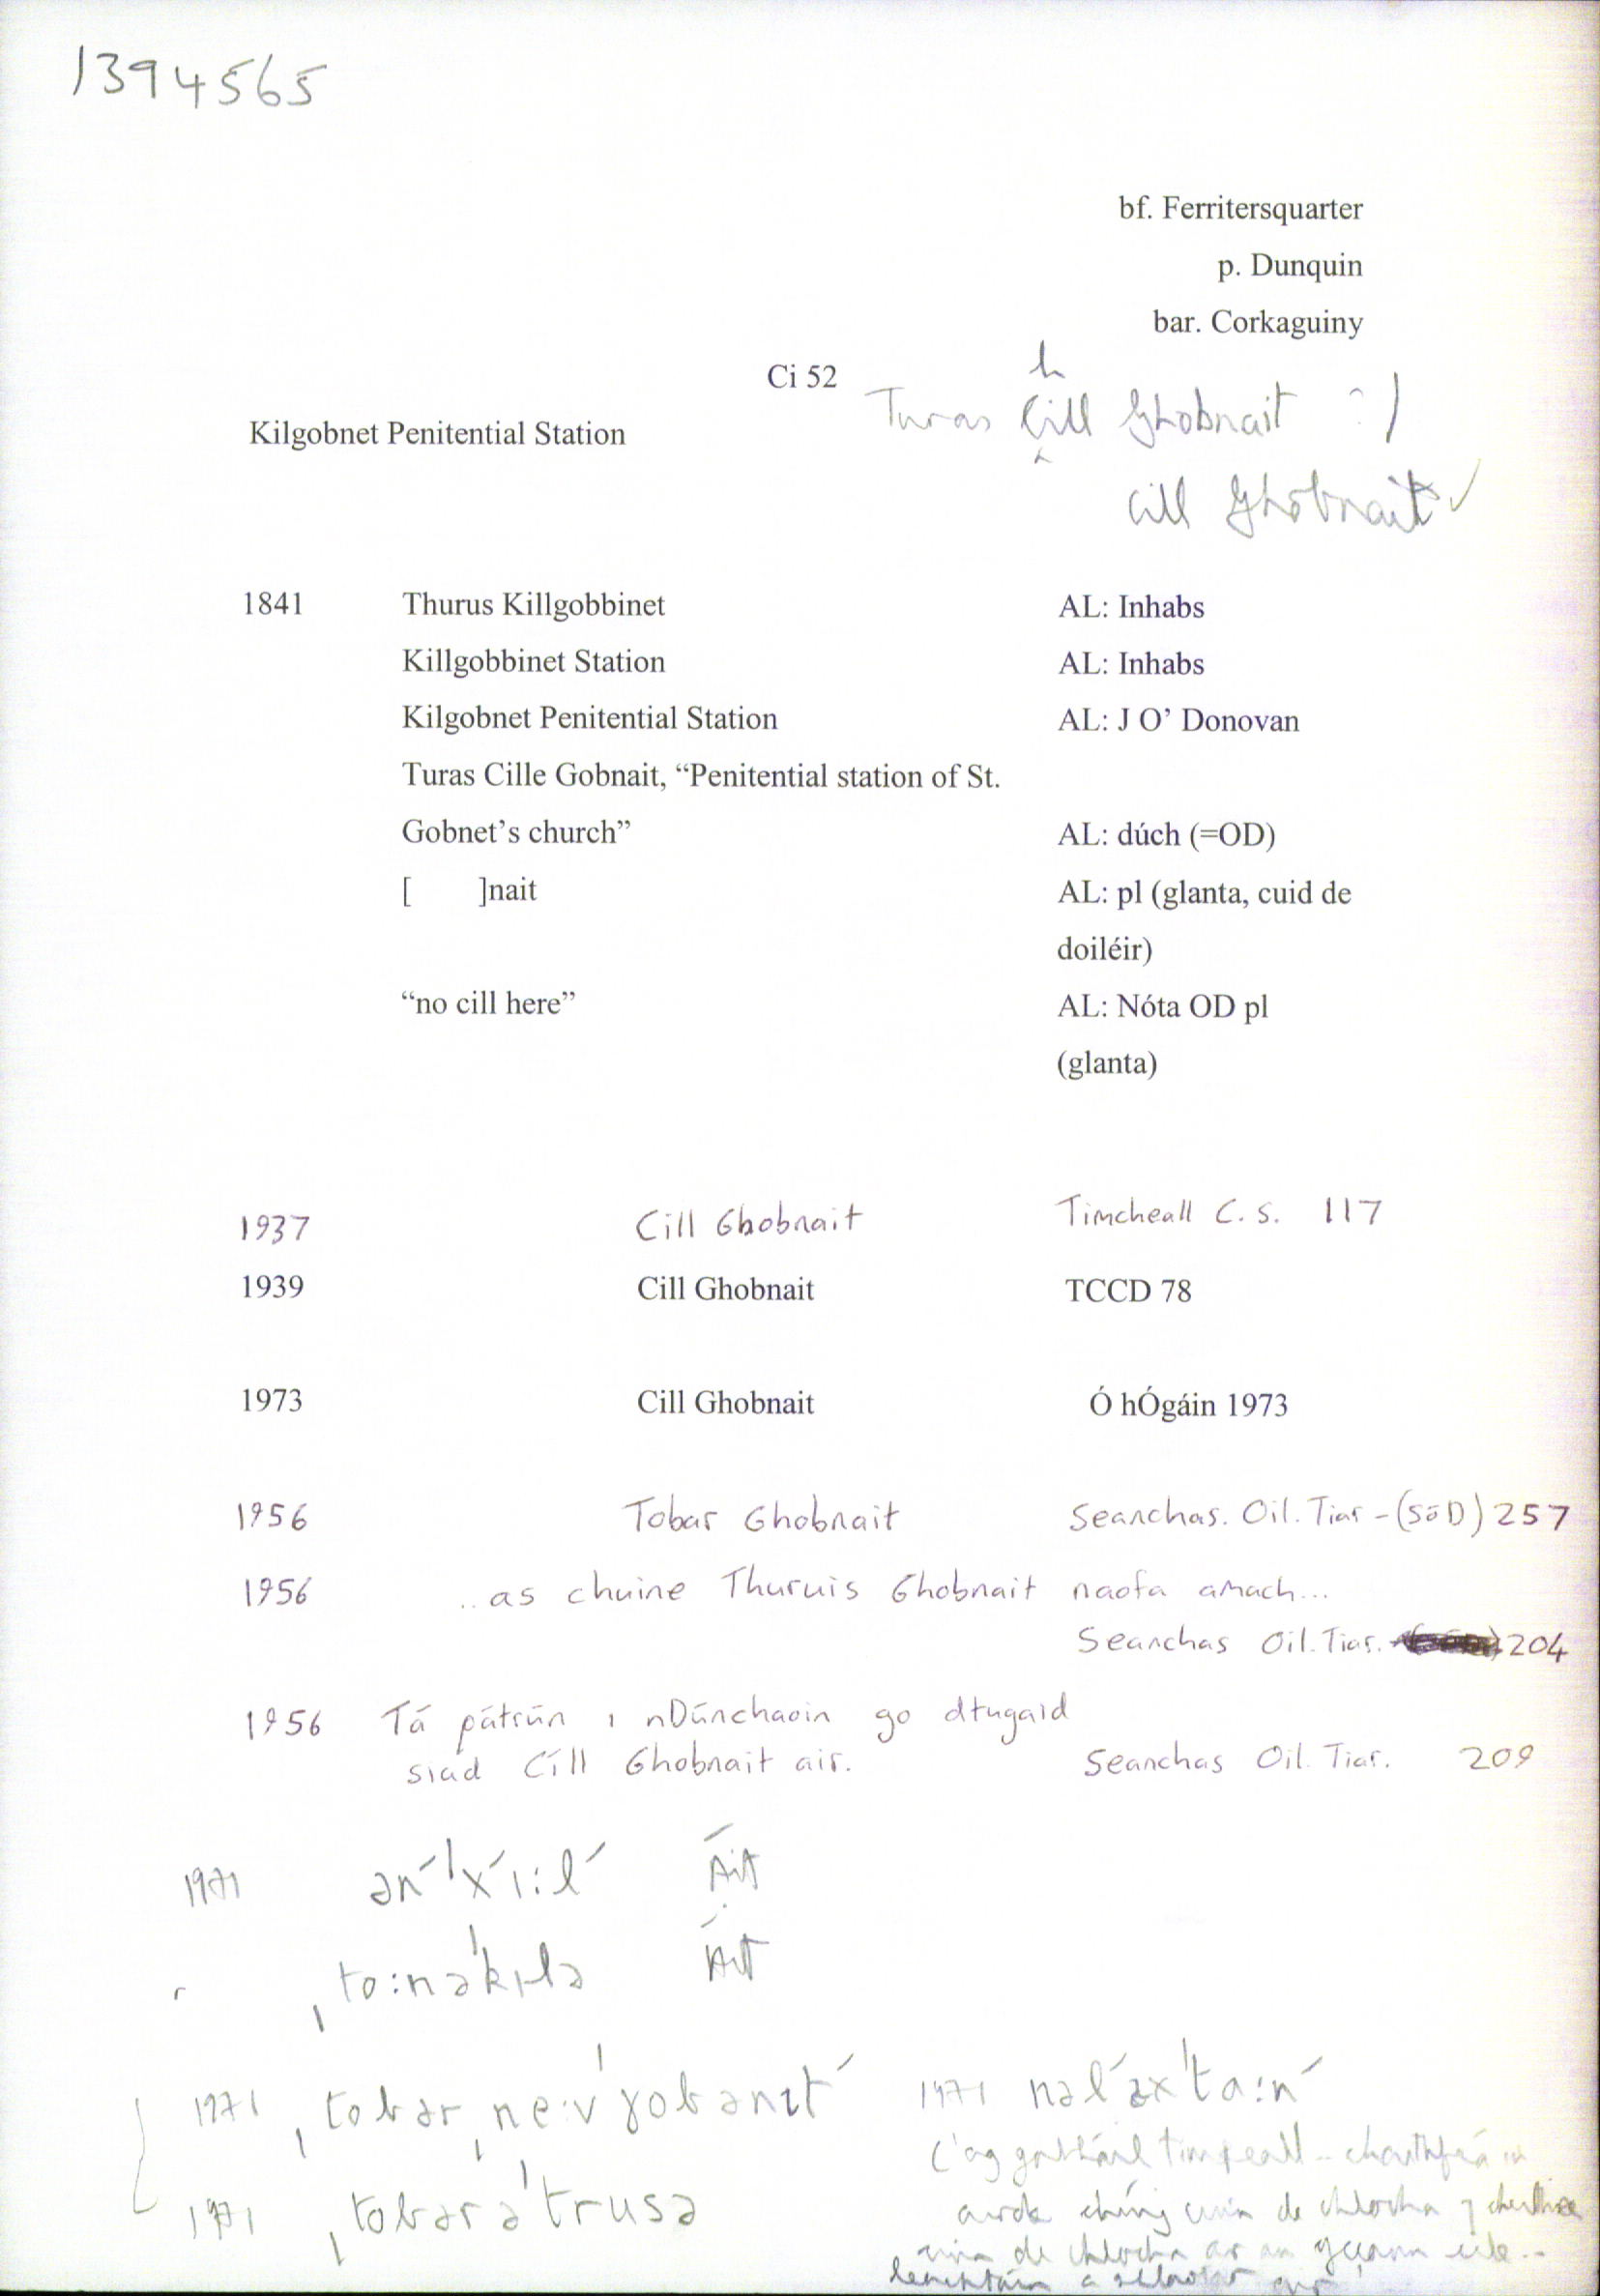 1394565
bf. Ferritersquarter
p. Dunquin
bar. Corkaguiny
Ci 52
h
Turas Cill Ghobnait
Kilgobnet Penitential Station
Cill Ghobnait ✓
1841 Thurus Killgobbinet AL: Inhabs
Killgobbinet Station AL: Inhabs
Kilgobnet Penitential Station AL: J O’ Donovan
Turas Cille Gobnait, “Penitential station of St.
Gobnet’s church” AL: dúch (=OD)
[ ]nait AL: pl (glanta, cuid de
doiléir)
“no cill here” AL: Nóta OD pl
(glanta)
1937 Cill Ghobnait Timcheall C.S. 117
1939 Cill Ghobnait TCCD 78
1973 Cill Ghobnait Ó hÓgáin 1973
1956 Tobar Ghobnait Seanchas. Oil. Tiar - (SÓD) 257
1956 ..as chuine Thuruis Ghobnait naofa amach...
Seanchas Oil. Tiar. 204
1956 Tá pátrún i nDúnchaoin go dtugaid
siad Cill Ghobnait air. Seanchas Oil. Tiar. 209
1971 ən´ˈx´i:l´ Áit
ˌto:nəˈkılə Áit
1971 ˌtobər ˌne:vˈɣobənıt´ 1971 nəl´əxˈta:n´
timpeall
1971 ˌtobərəˈtrusə
de chlocha
de chlocha ar an